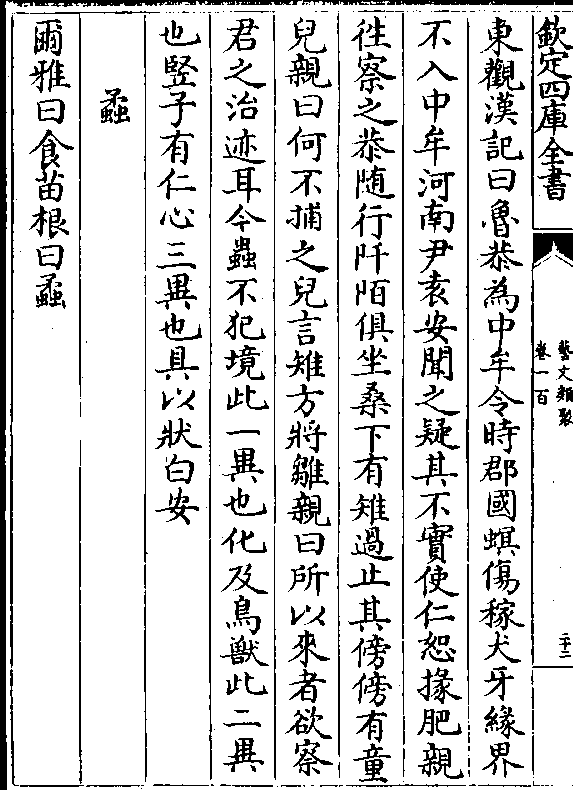 欽定四庫全書
藝文類聚
卷一百
二十二
東觀漢記曰魯恭為中牟令時郡國螟傷稼犬牙緣界
不入中牟河南尹袁安聞之疑其不實使仁恕掾肥親
徃察之恭随行阡陌俱坐桑下有雉過止其傍傍有童
兒親曰何不捕之兒言雉方將雛親曰所以來者欲察
君之治迹耳今蟲不犯境此一異也化及鳥獸此二異
也竪子有仁心三異也具以狀白安
蟊
爾雅曰食苗根曰蟊